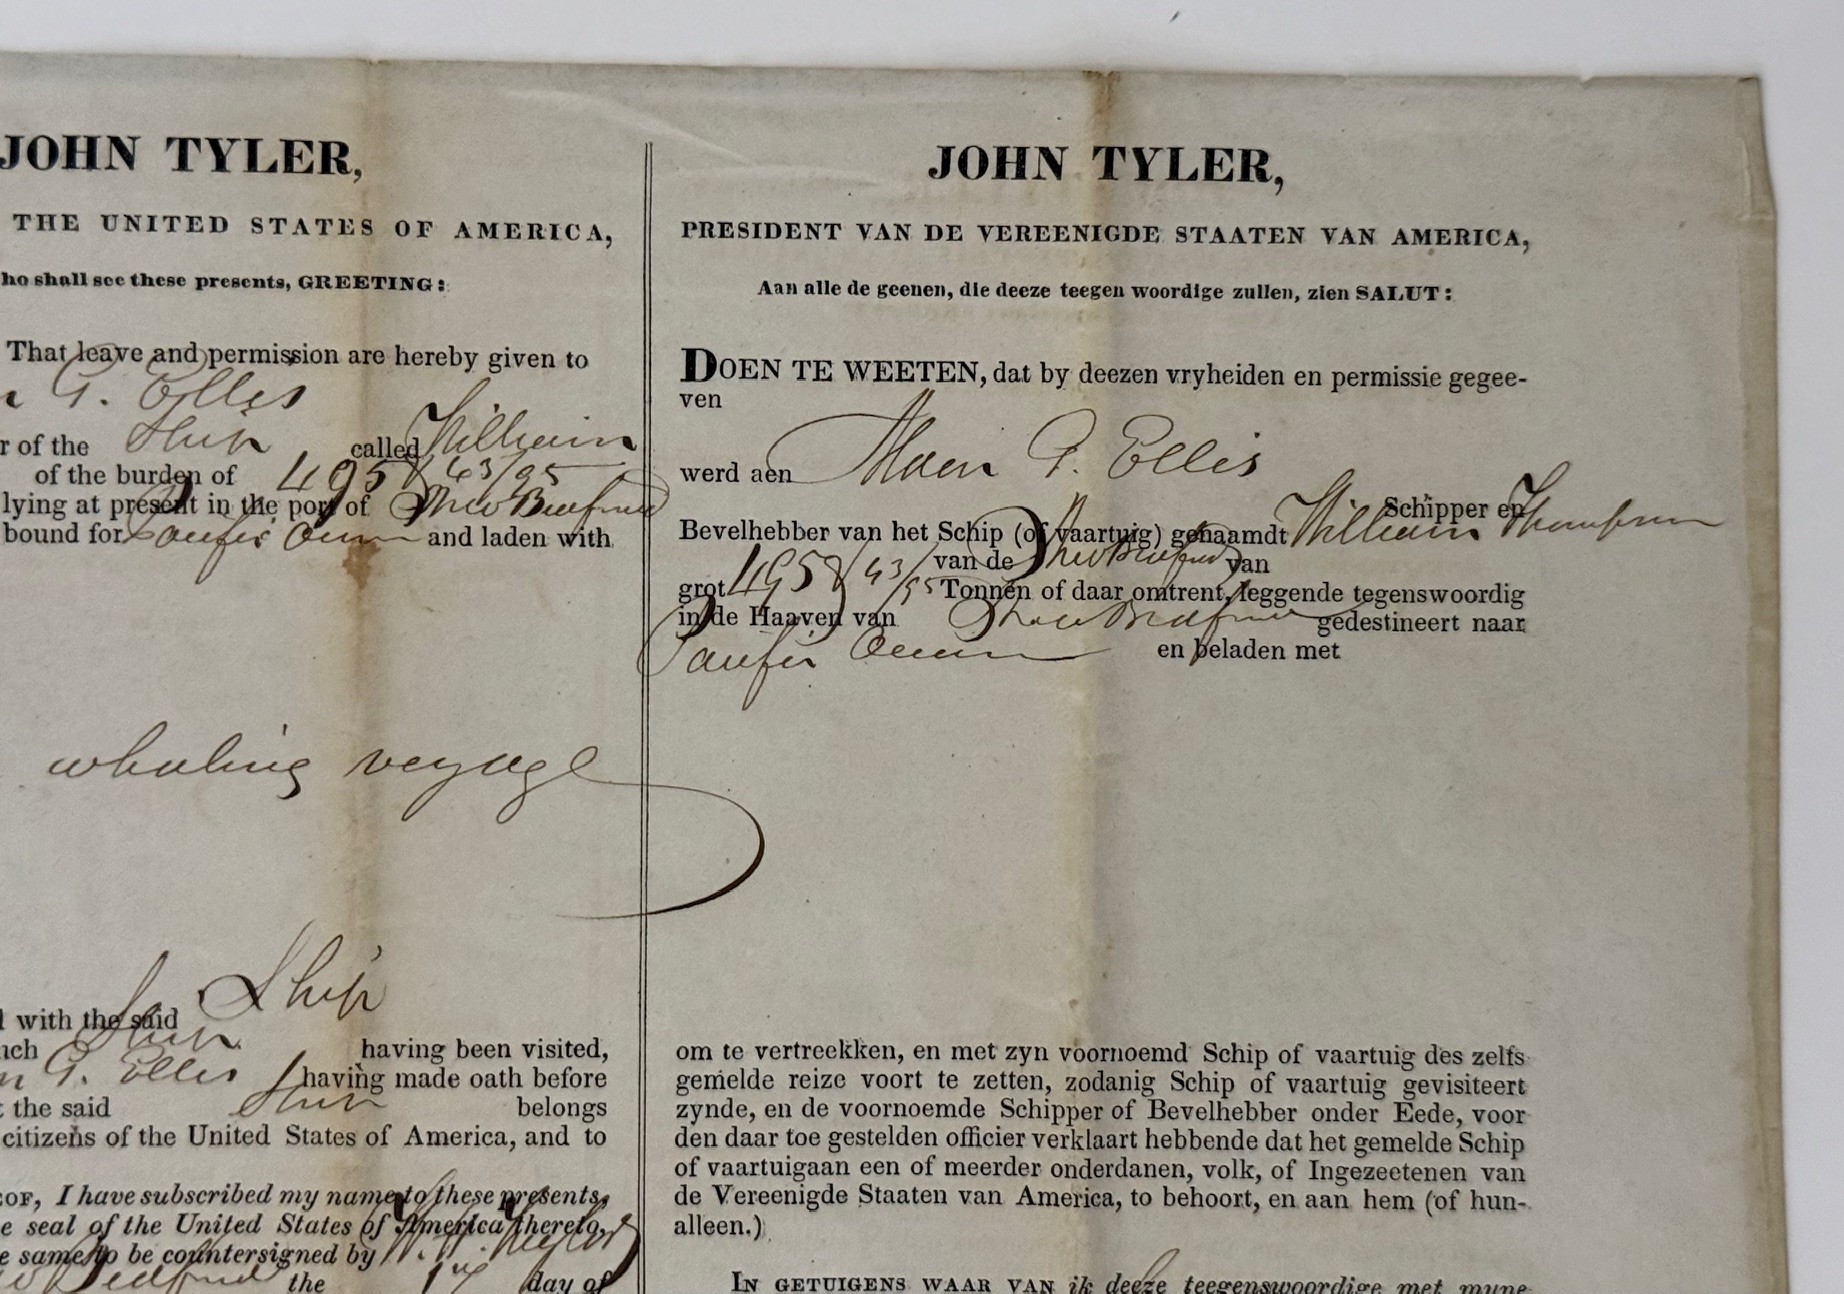 JOHN TYLER,
THE UNITED STATES OF AMERICA,
ho shall see these presents, GREETING:
That leave and permission are hereby given to
G. Ellis
r of the Ship called William
of the burden of 495 43/95
lying at present in the port of New Bedford
bound for Pacific Ocean and laden with
whaling voyage
Ship
l with the said
ich Ship having been visited,
n G. Ellis having made oath before
t the said Ship belongs
citizens of the United States of America, and to
EOF, I have subscribed my name to these presents,
e seal of the United States of America thereto,
e same to be countersigned by
Bedford the 17 day of
JOHN TYLER,
PRESIDENT VAN DE VEREENIGDE STAATEN VAN AMERICA,
Aan alle de geenen, die deeze teegen woordige zullen, zien SALUT:
DOEN TE WEETEN, dat by deezen vryheiden en permissie gegee-
ven
werd aen G. Ellis
Schipper en
Bevelhebber van het Schip (of vaartuig) genaamdt William Thompson
van de New Bedford van
grot 495 43/95 Tonnen of daar omtrent, leggende tegenswoordig
in de Haaven van New Bedford gedestineert naar
Pacific Ocean en beladen met
om te vertreekken, en met zyn voornoemd Schip of vaartuig des zelfs
gemelde reize voort te zetten, zodanig Schip of vaartuig gevisiteert
zynde, en de voornoemde Schipper of Bevelhebber onder Eede, voor
den daar toe gestelden officier verklaart hebbende dat het gemelde Schip
of vaartuigaan een of meerder onderdanen, volk, of Ingezeetenen van
de Vereenigde Staaten van America, to behoort, en aan hem (of hun-
alleen.)
IN GETUIGENS WAAR VAN ik deeze teegenswoordige met myne